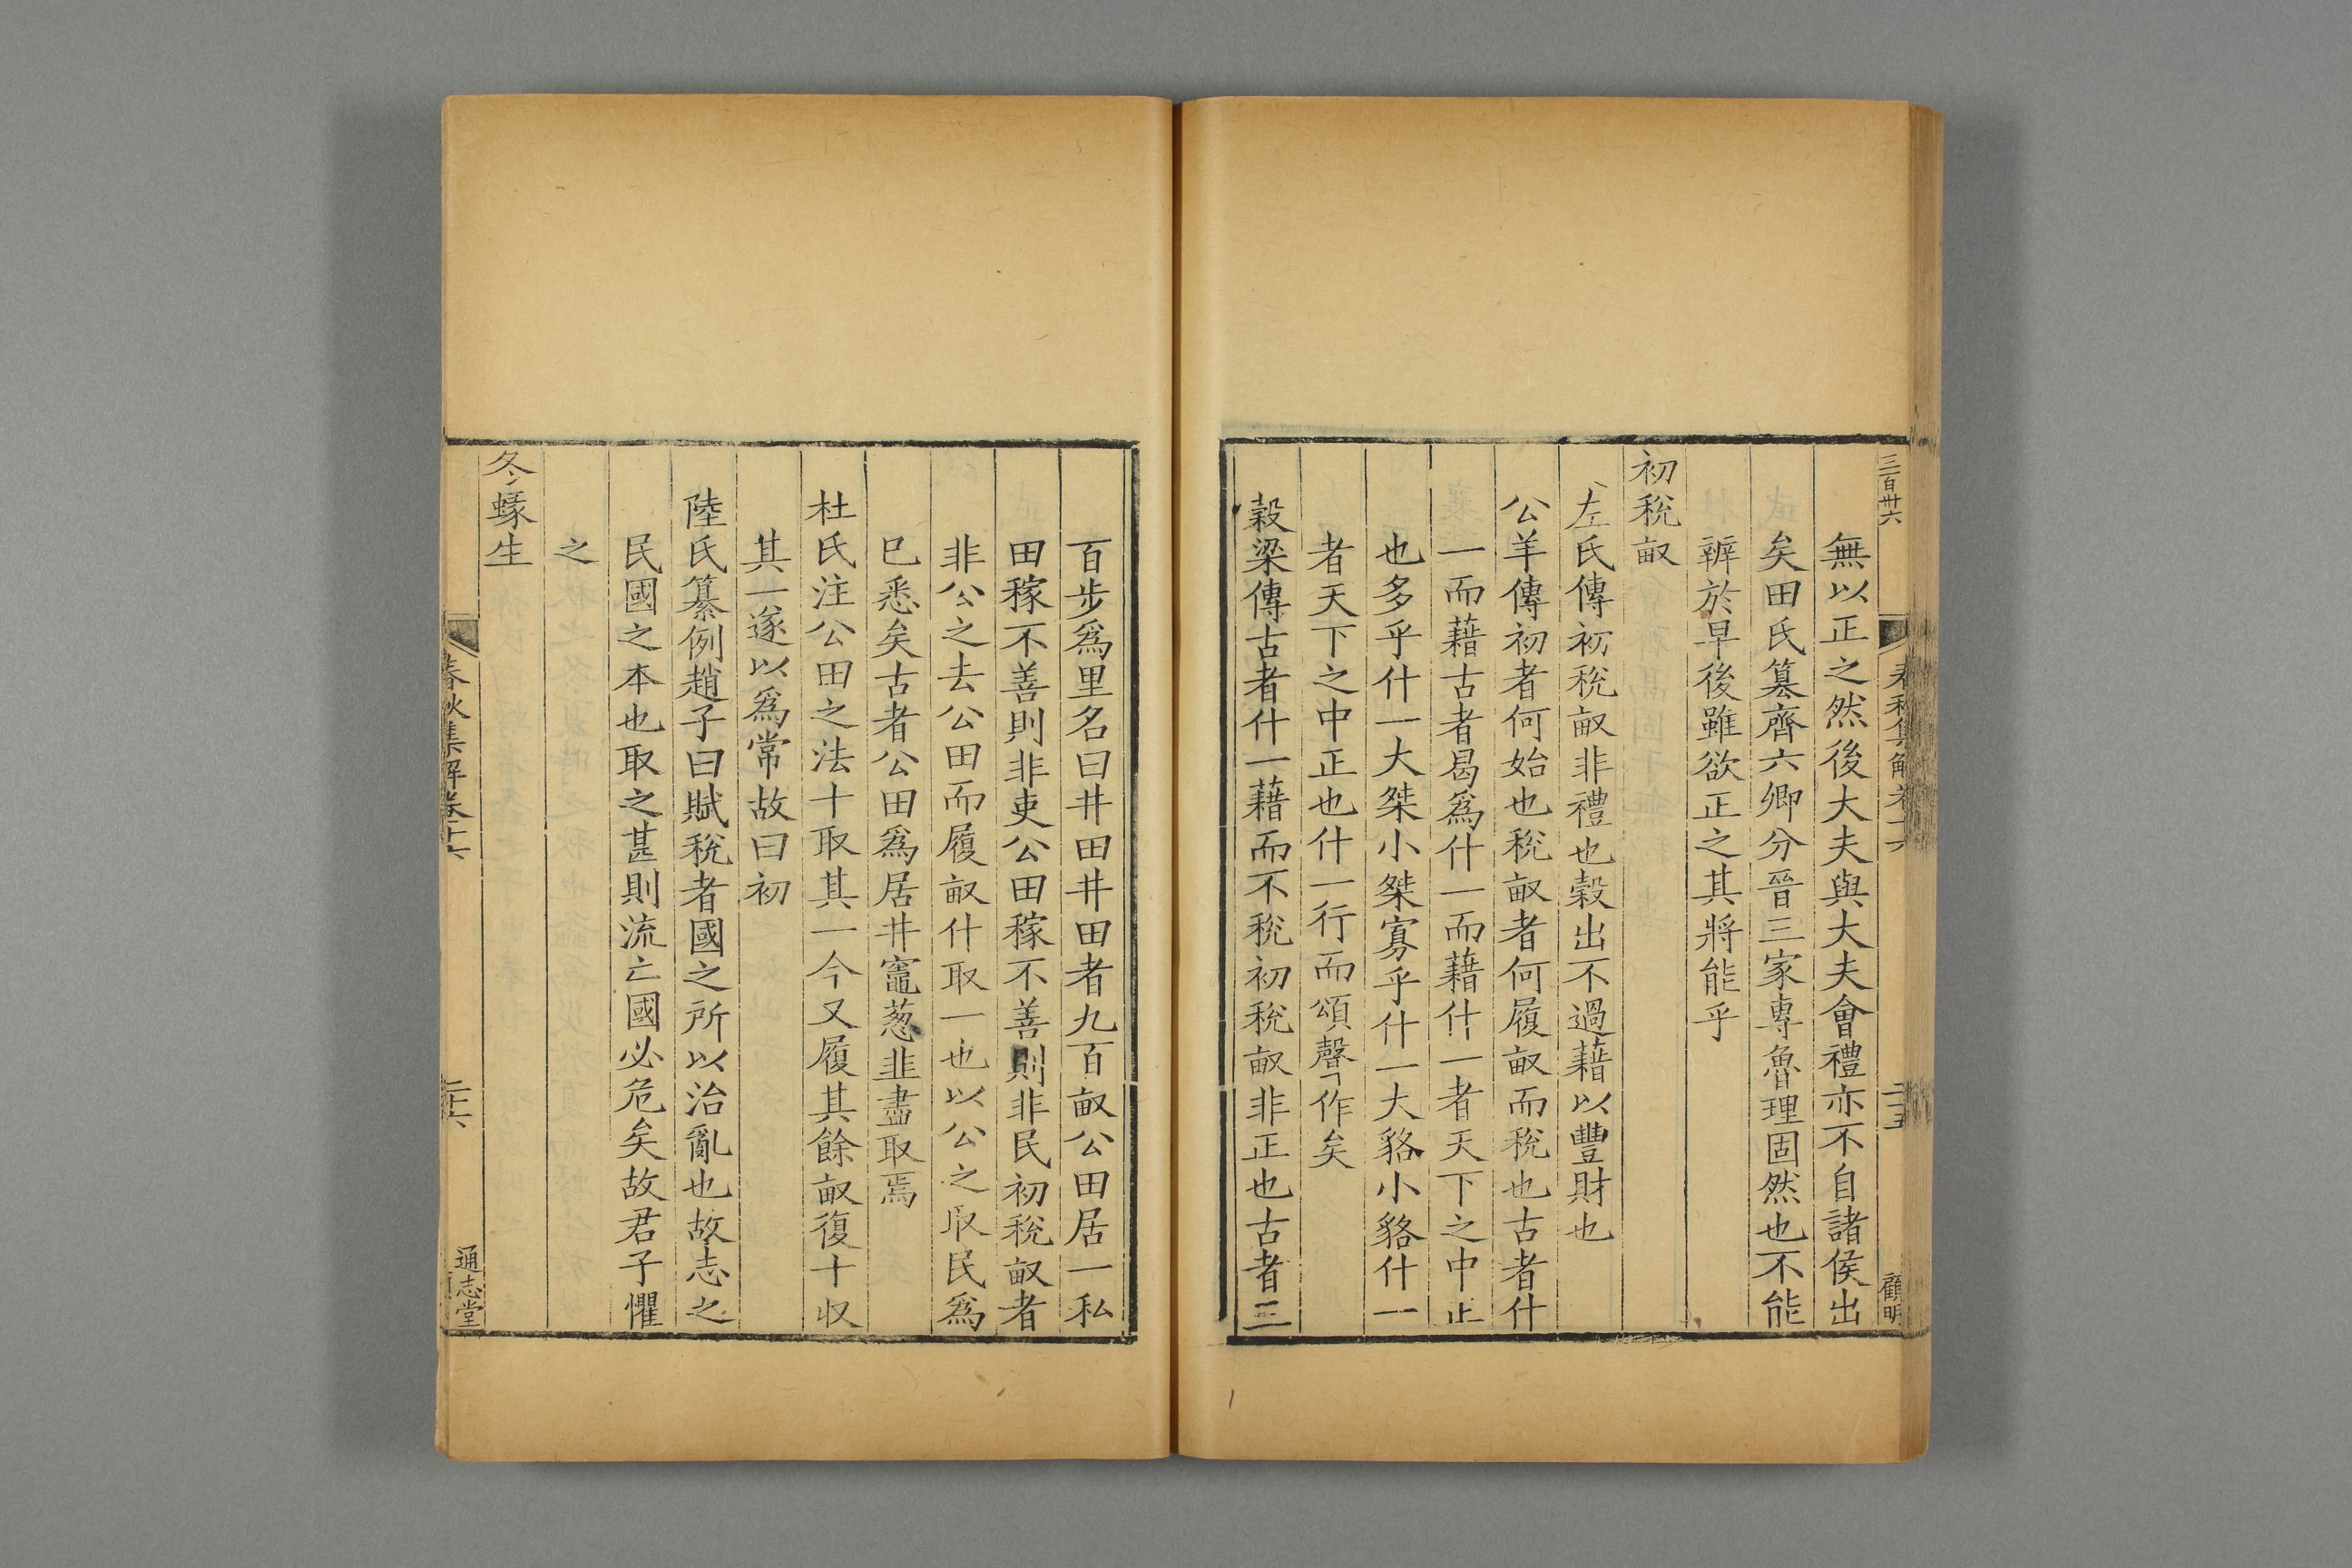 三百卅六
無以正之然後大夫與大夫會禮亦不自諸侯出
矣田氏簒齊六卿分晉三家專魯理固然也不能
辨於早後雖欲正之其將能乎
初稅畝
左氏傳初稅畝非禮也穀出不過藉以豐財也
公羊傳初者何始也稅畝者何履畝而稅也古者什
一而藉古者曷爲什一而藉什一者天下之中正
也多乎什一大桀小桀寡乎什一大貉小貉什一
者天下之中正也什一行而頌聲作矣
穀梁傳古者什一藉而不稅初稅畝非正也古者三
百步爲里名曰井田井田者九百畝公田居一私
田稼不善則非吏公田稼不善則非民初稅畝者
非公之去公田而履畝什取一也以公之取民爲
已悉矣古者公田爲居井竈葱韭盡取焉
杜氏注公田之法十取其一今又履其餘畝復十收
其一遂以爲常故曰初
陸氏纂例趙子曰賦稅者國之所以治亂也故志之
民國之本也取之甚則流亡國必危矣故君子懼
之
冬蝝生
春秋集解卷十六
二十六
通志堂